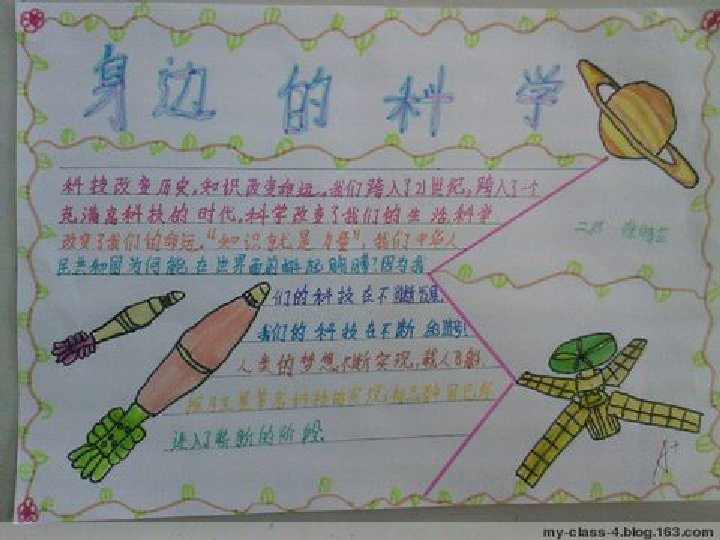 身边的科学
科技改变历史,知识改变命运,我们踏入了21世纪,踏入了一个
充满高科技的时代,科学改变了我们的生活,科学
改变了我们的命运。“知识就是力量”,我们中华人
民共和国为何能在世界面前挺起胸脯?因为我
们的科技在不断发展,
我们的科技在不断
人类的梦想不断实现,载人飞船,
等高科技的实现,
进入了崭新的阶段.
二班
A+
my-class-4.blog.163.com